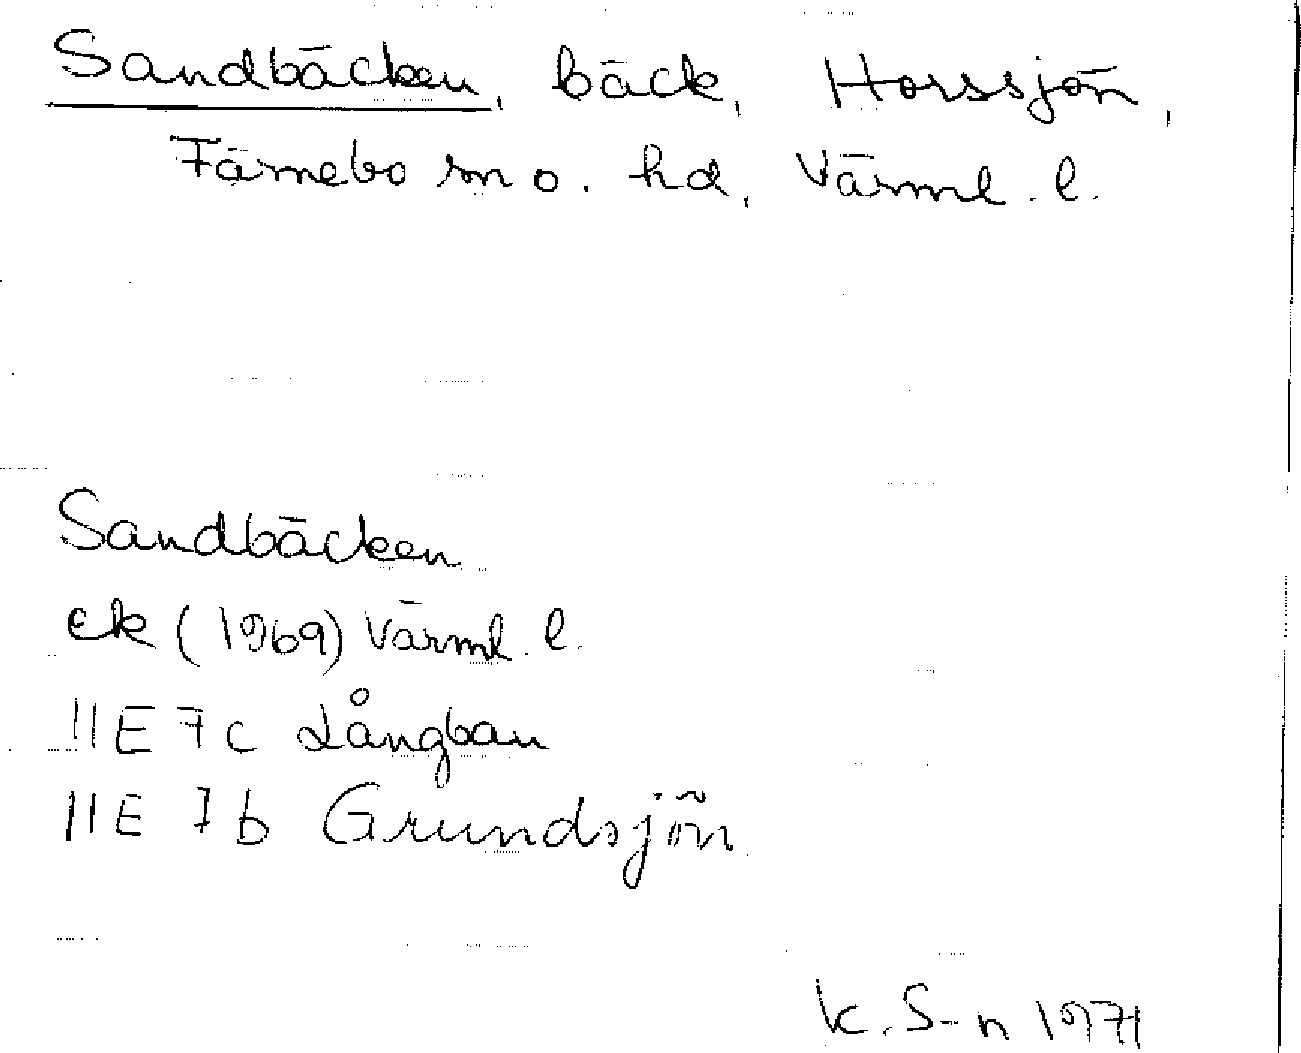 Sandbäcken, bäck, Horssjön,
Färnebo sn o. hd, Värml. l.
Sandbäcken
ek (1969) Värml. l.
11E 7c Långban
11E 7b Grundsjön
K. S-n 1971